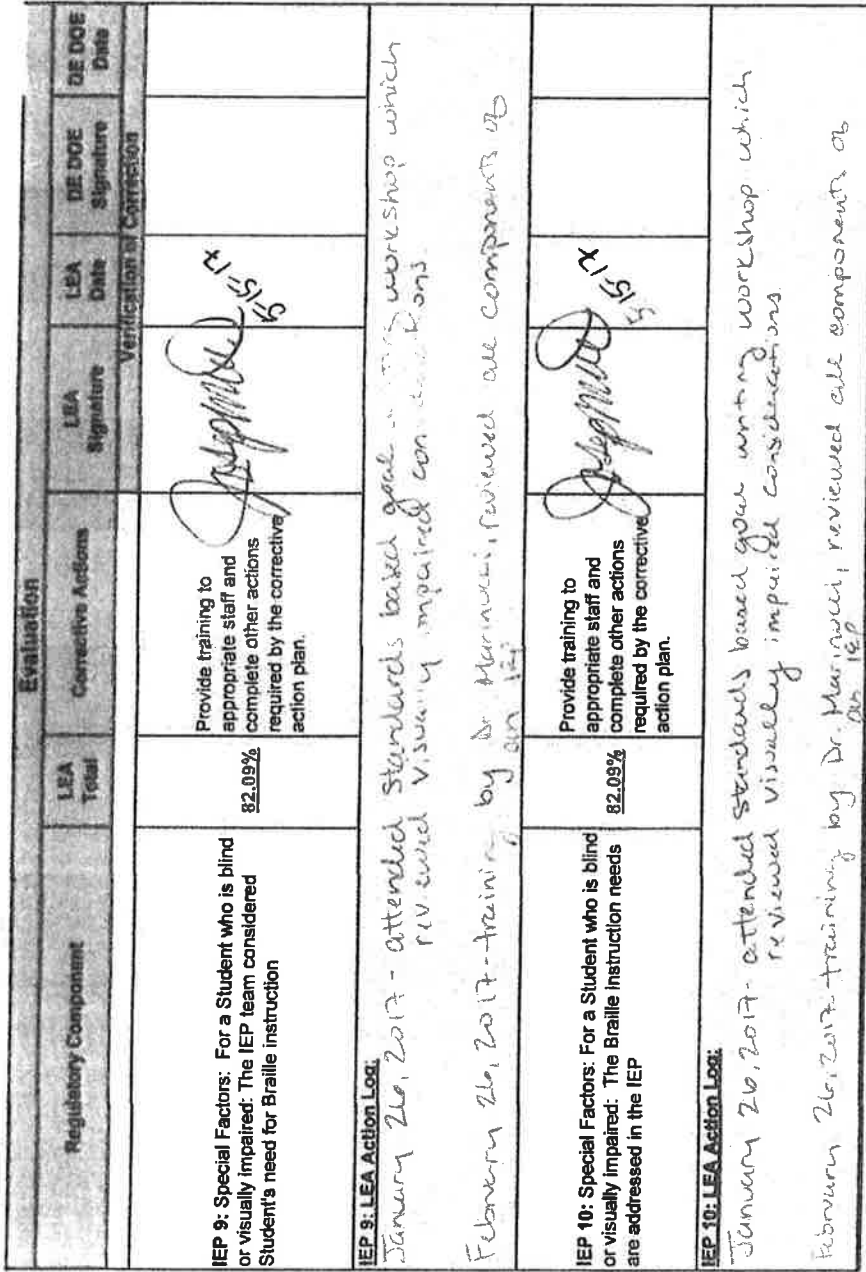 Evaluation
Regulatory Component
LEA Total
Corrective Actions
LEA Signature
LEA Date
DE DOE Signature
DE DOE Date
Verification of Correction
IEP 9: Special Factors: For a Student who is blind
or visually impaired: The IEP team considered
Student's need for Braille instruction
82.09%
Provide training to
appropriate staff and
complete other actions
required by the corrective
action plan.
5-15-17
IEP 9: LEA Action Log:
January 26, 2017 - attended Standards based goal workshop which
reviewed visually impaired considerations.
February 26, 2017 - training by Dr. Marinucci, reviewed all components of
an IEP
IEP 10: Special Factors: For a Student who is blind
or visually impaired: The Braille instruction needs
are addressed in the IEP
82.09%
Provide training to
appropriate staff and
complete other actions
required by the corrective
action plan.
5-15-17
IEP 10: LEA Action Log:
January 26, 2017 - attended Standards based goal writing workshop which
reviewed visually impaired considerations.
February 26, 2017 - training by Dr. Marinucci, reviewed all components of
an IEP